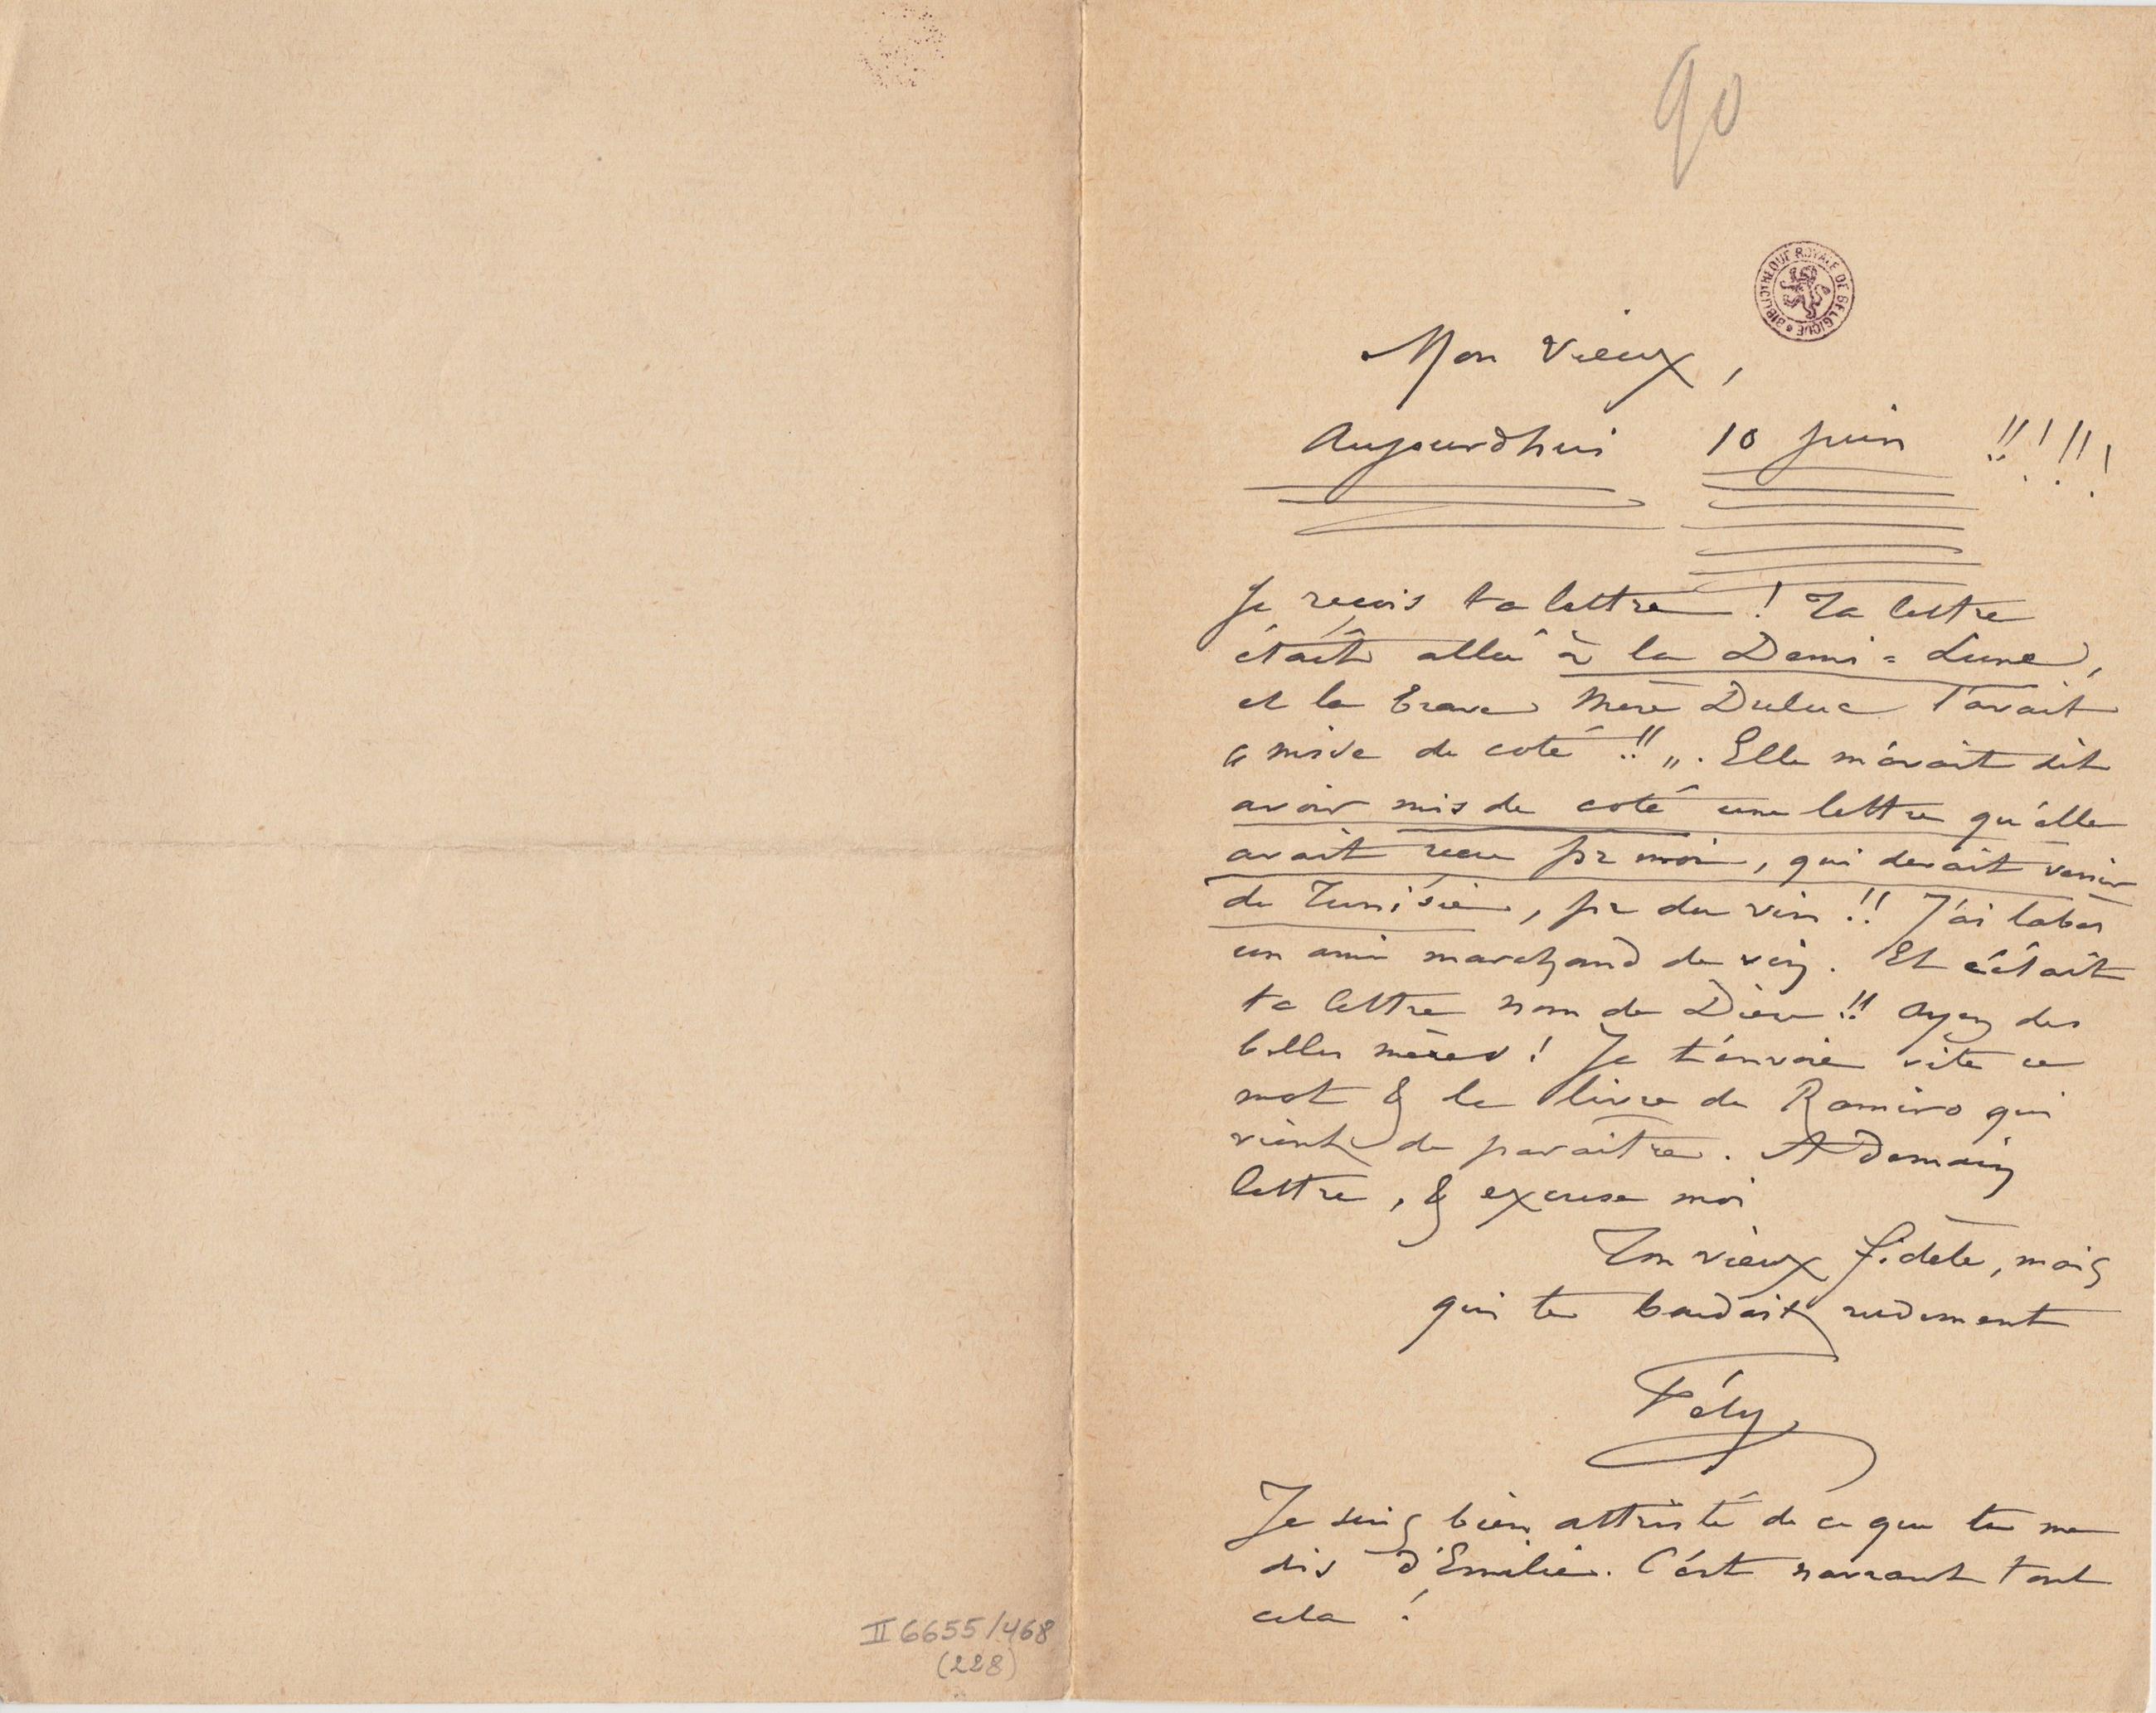 90
BIBLIOTHEQUE ROYALE DE BELGIQUE
Mon Vieux,
Aujourdhui 10 Juin !!!!!!
Je reçois ta lettre ! Ta lettre
était allée à la Demi=Lune,
et la brave Mère Duluc l'avait
« mise de coté !! „. Elle m'avait dit
avoir mis de coté une lettre qu'elle
avait reçu pr moi, qui devait venir
de Tunisie, pr du vin !! J'ai làbas
un ami marchand de vin. Et c'était
ta lettre nom de Dieu !! Ayez des
belles mères ! Je t'envoie vite ce
mot & le livre de Ramiro qui
vient de paraître. A Demain
lettre, & excuse moi
Ton vieux fidèle, mais
qui te boudait rudement
Fély
Je suis bien attristé de ce que tu me
dis d'Emilie. C'est navrant tout
cela !
II 6655/468
(228)